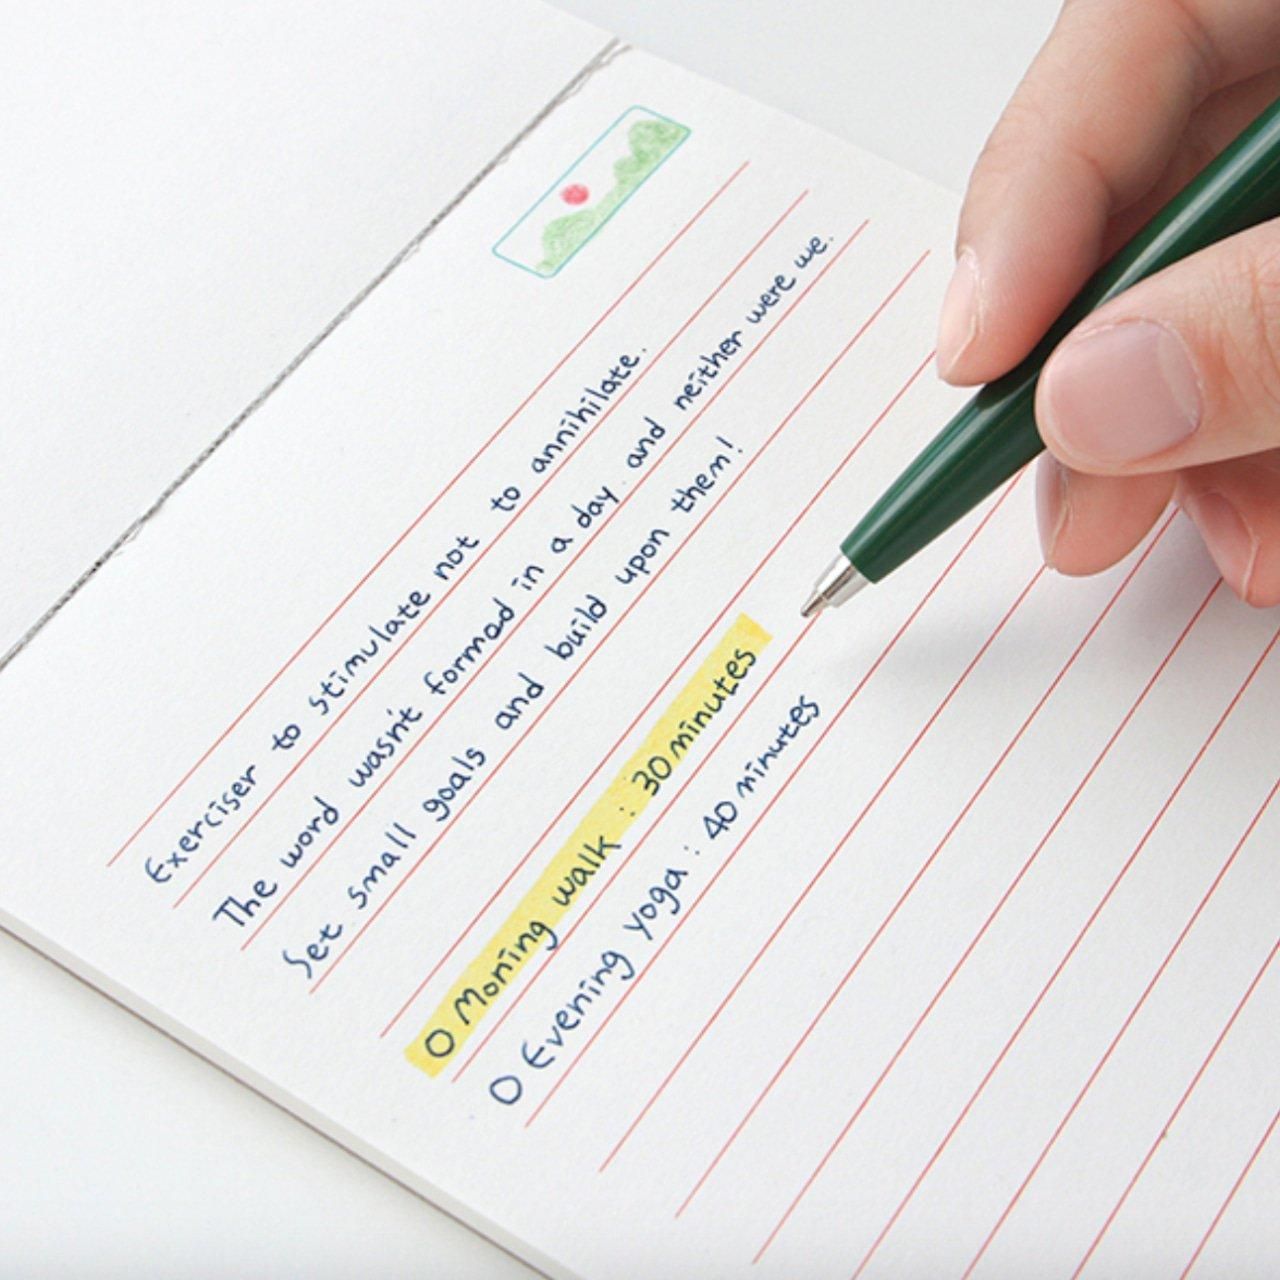 Exerciser to stimulate not to annihilate.
The word wasn't formad in a day. and neither were we.
Set small goals and build upon them!
O Moning walk : 30 minutes
O Evening yoga : 40 minutes